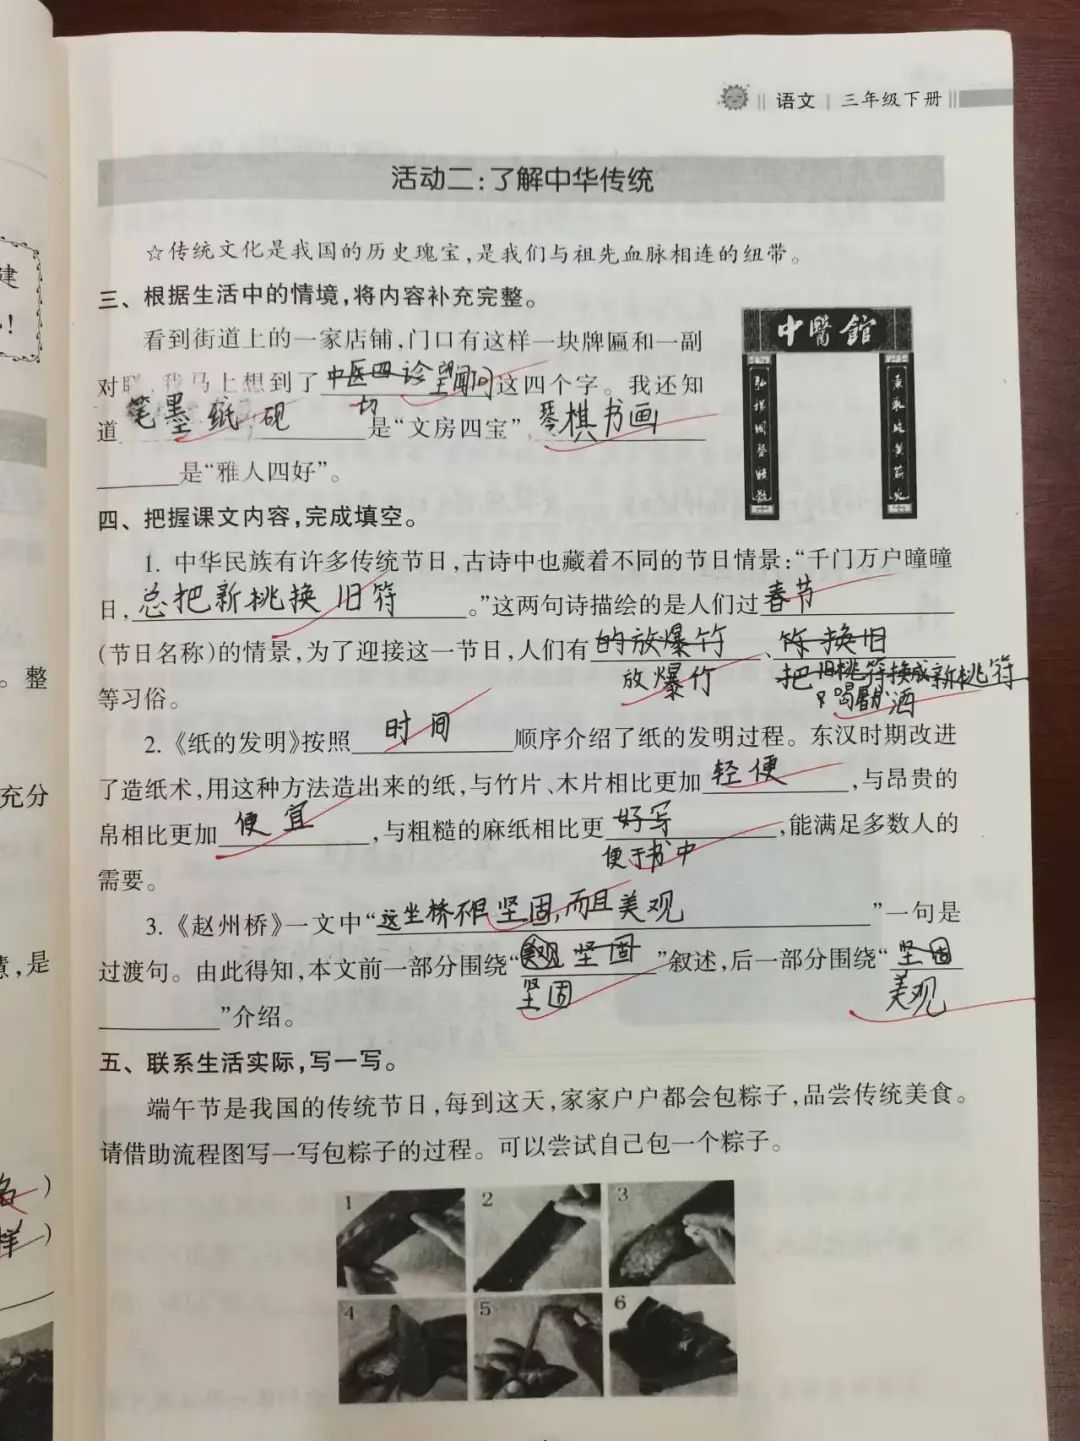 语文 三年级下册
活动二:了解中华传统
☆传统文化是我国的历史瑰宝,是我们与祖先血脉相连的纽带。
三、根据生活中的情境,将内容补充完整。
看到街道上的一家店铺,门口有这样一块牌匾和一副
对联,我马上想到了中医四诊望闻问切这四个字。我还知
道笔墨纸砚是“文房四宝”,琴棋书画
是“雅人四好”。
中醫館
四、把握课文内容,完成填空。
1. 中华民族有许多传统节日,古诗中也藏着不同的节日情景:“千门万户曈曈
日,总把新桃换旧符。”这两句诗描绘的是人们过春节
(节日名称)的情景,为了迎接这一节日,人们有的放爆竹、换旧
放爆竹 把旧桃符换成新桃符
等习俗。 喝屠苏酒
2.《纸的发明》按照时间顺序介绍了纸的发明过程。东汉时期改进
了造纸术,用这种方法造出来的纸,与竹片、木片相比更加轻便,与昂贵的
帛相比更加便宜,与粗糙的麻纸相比更好写,能满足多数人的
便于书中
需要。
3.《赵州桥》一文中“这坐桥不但坚固,而且美观”一句是
过渡句。由此得知,本文前一部分围绕“美观坚固”叙述,后一部分围绕“坚固
坚固 美观
”介绍。
五、联系生活实际,写一写。
端午节是我国的传统节日,每到这天,家家户户都会包粽子,品尝传统美食。
请借助流程图写一写包粽子的过程。可以尝试自己包一个粽子。
1 2 3
4 5 6
建
!
。整
充分
,是
)
样)